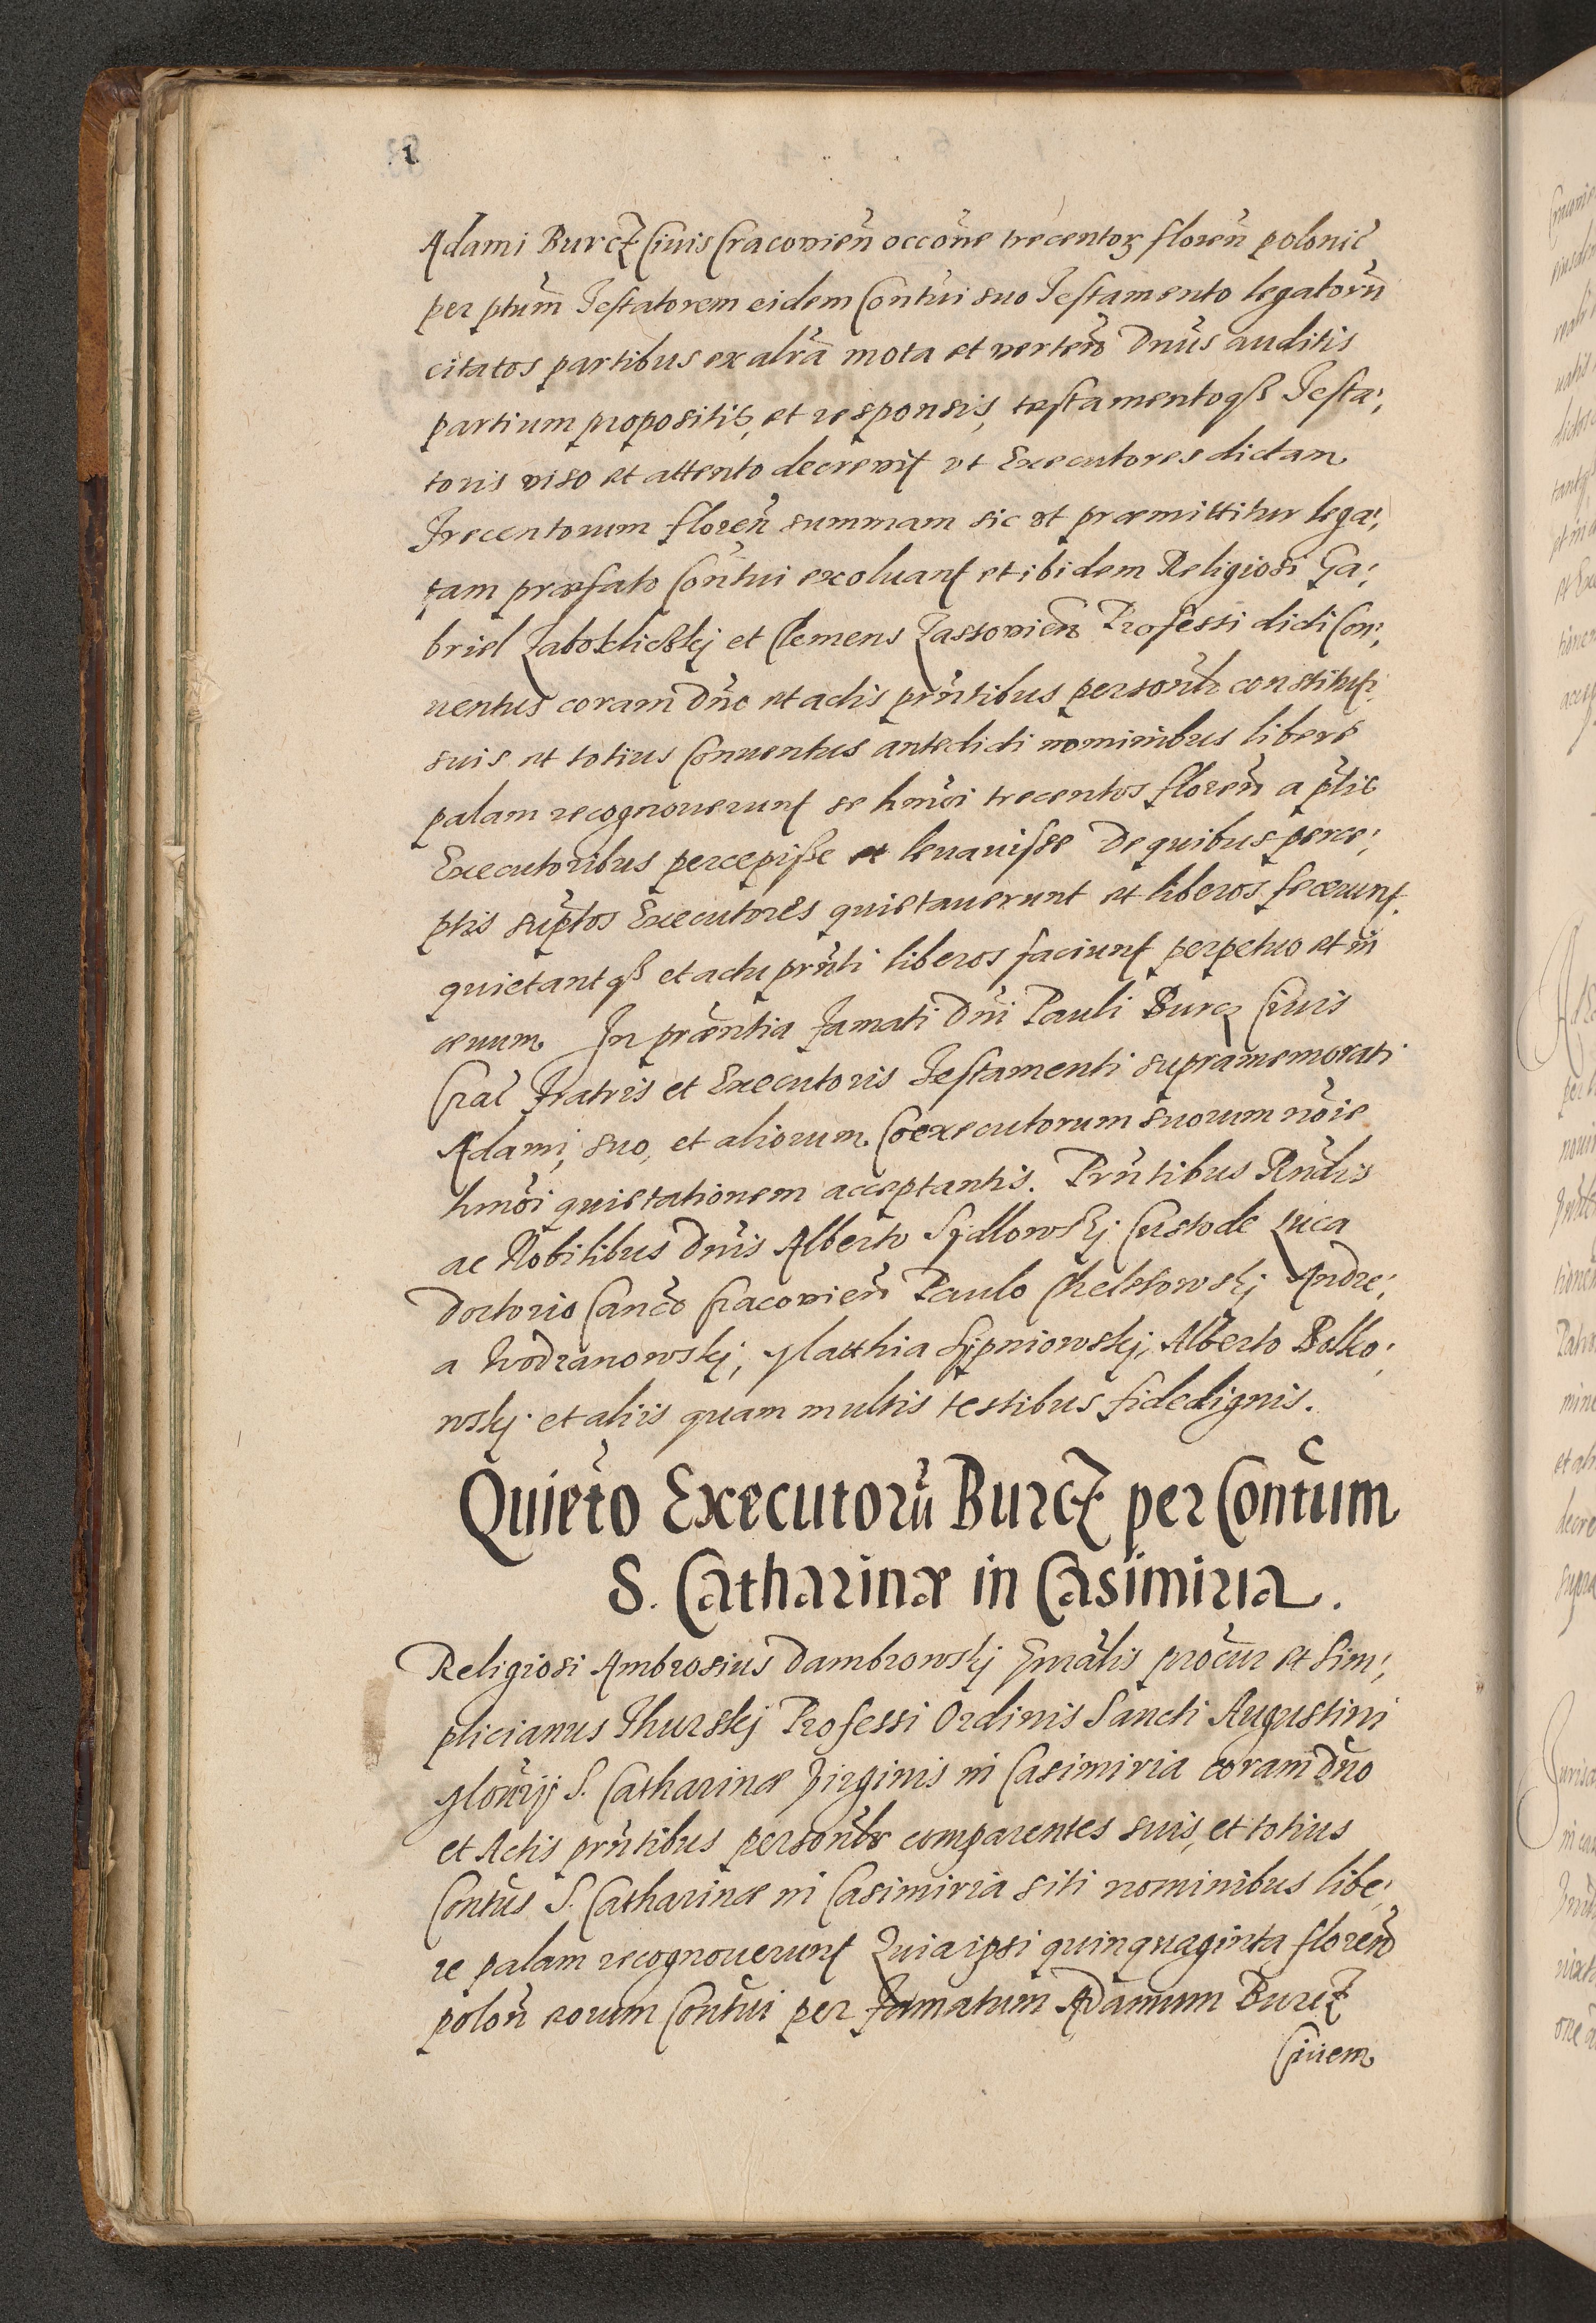 Adami Burcz Ciuis Cracovień occōne trecentorꝫ floreń polonić
per ptum̃ Testatorem eidem Contũi suo Testamento legatorũ
citatos partibus ex alrã mota et verteñ Dnũs auditis
partium propositis, et responsis, testamentoqꝫ Testa:
toris viso et attento decrevit vt Executores dictam
Trecentorum floreñ summam sic vt præmittitur lega:
tam præfato Contũi exoluant et ibidem Religiosi Ga:
briel et Clemens Professi dicti Con:
uentus coram Dñc et actis prñtibus personlr constituti
suis et totius Conuentus antedicti nominibus liberè
palam recognouerunt se hmõi trecentos floreñ a ptis
Executoribus percepisse et leuauisse De quibus perce:
ptis suptos Executores quietauerunt et liberos fecerunt
quietantqꝫ et actu prñti liberos faciunt perpetuo et in
æuum. In præntia famati Dñi Pauli Burcz Ciuis
Crac Fratris et Executoris Testamenti supramemorati
Adami, suo, et aliorum Coexecutorum suorum nõie
hmõi quietationem acceptantis. Prñtibus Rñdis
ac Nobilibus Dnis Alberto Sydlowskj Custode Luca
Doctorio Canco Cracovień Paulo Chelstowskj Andre:
a Wodzanowskj, Matthia Sypniowskj, Alberto Bolko:
wskj et aliis quam multis testibus fidedignis.
Quieto Executorũ Burcz per Contũm
S. Catharinæ in Casimiria.
Religiosi Ambrosius Dambrowskj Gnrãlis procur et Sim:
plicianus Thurskj Professi Ordinis Sancti Augustini
Monrij S. Catharinæ Virginis in Casimiria coram Dño
et Actis prñtibus personlr comparentes suis, et totius
Contus S. Catharinæ in Casimiria siti nominibus libe:
re palam recognouerunt Quia ipsi quinquaginta floreñ
poloñ eorum Contũi per famatum Adamum Burcz
Ciuem